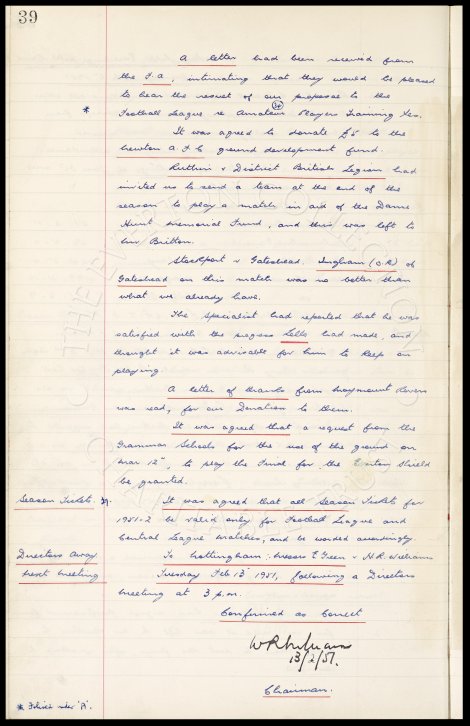 39
A letter had been received from
the F.A, intimating that they would be pleased
to hear the result of our proposal to the
* Football League re Amateur Players Training Fees.
It was agreed to donate £5 to the
A.F.C ground development fund.
Ruthin & District British Legion had
invited us to send a team at the end of the
season to play a match in aid of the Dame
Hunt memorial Fund, and this was left to
Mr Britton.
Stockport v Gateshead. Ingham (O.R) of
Gateshead on this match was no better than
what we already have.
The Specialist had reported that he was
satisfied with the progress had made, and
thought it was advisable for him to keep on
playing.
A letter of thanks from Rovers
was read, for our Donation to them.
It was agreed that a request from the
Grammar Schools for the use of the ground on
Mar 12th, to play the Final for the Shield
be granted.
Season Tickets. It was agreed that all Season Tickets for
1951-2 be valid only for Football League and
Central League matches, and be worded accordingly
Directors away To Nottingham: Messrs E Green & H.R. Williams
next meeting Tuesday Feb 13th 1951, following a Directors
meeting at 3 p.m.
Confirmed as Correct
W R Williams
13/2/51.
Chairman.
* under "A".